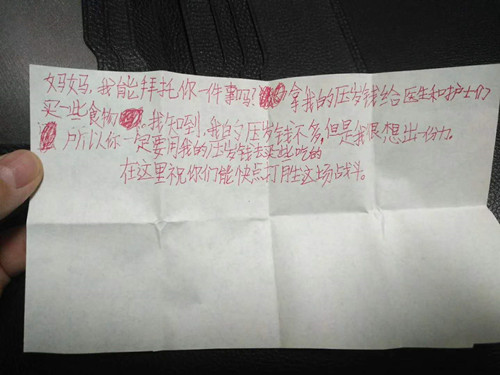 妈妈，我能拜托你一件事吗？拿我的压岁钱给医生和护士们
买一些食物。我知到，我的压岁钱不多，但是我很想出一份力。
所以你一定要用我的压岁钱去买些吃的
在这里祝你们能快点打胜这场战斗。